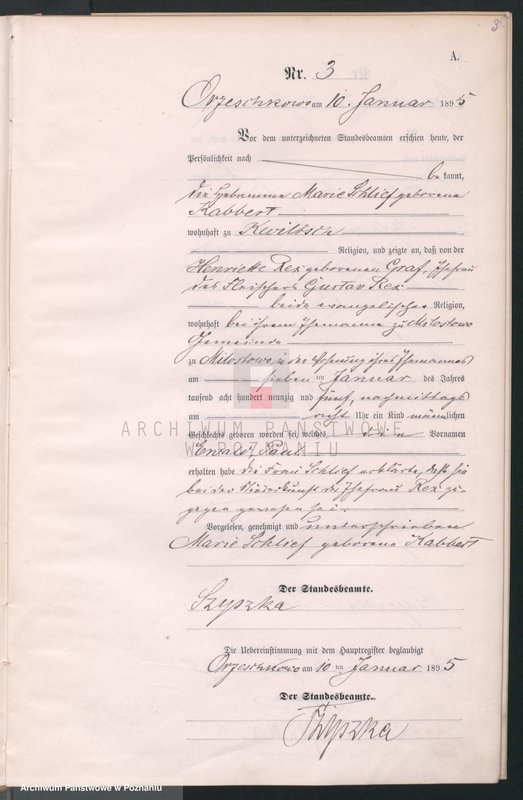 3
A.
Nr. 3
Orzeschkowo am 10. Januar 1895
Vor dem unterzeichneten Standesbeamten erschien heute, der
Persönlichkeit nach
bekannt,
die Hebamme Marie Schlief geborene
Kabbert
wohnhaft zu Kwiltsch
Religion, und zeigte an, daß von der
Henriette Rex geborenen Graf, Ehefrau
des Fleischers Gustav Rex
beide evangelischer Religion,
wohnhaft bei ihrem Ehemanne zu Milostowo
Gemeinde
zu Milostowo in der Wohnung ihres Ehemannes
am sieben ten Januar des Jahres
tausend acht hundert neunzig und fünf, nachmittags
um acht Uhr ein Kind männlichen
Geschlechts geboren worden sei, welches die Vornamen
Ewald, Paul
erhalten habe. Die Frau Schlief erklärte, daß sie
bei der Niederkunft der Ehefrau Rex zu-
gegen gewesen sei
Vorgelesen, genehmigt und unterschrieben
Marie Schlief geborene Kabbert
Der Standesbeamte.
Szyszka
Die Uebereinstimmung mit dem Hauptregister beglaubigt
Orzeschkowo am 10 ten Januar 1895
Der Standesbeamte.
Szyszka
ARCHIWUM PAŃSTWOWE
W POZNANIU
Archiwum Państwowe w Poznaniu